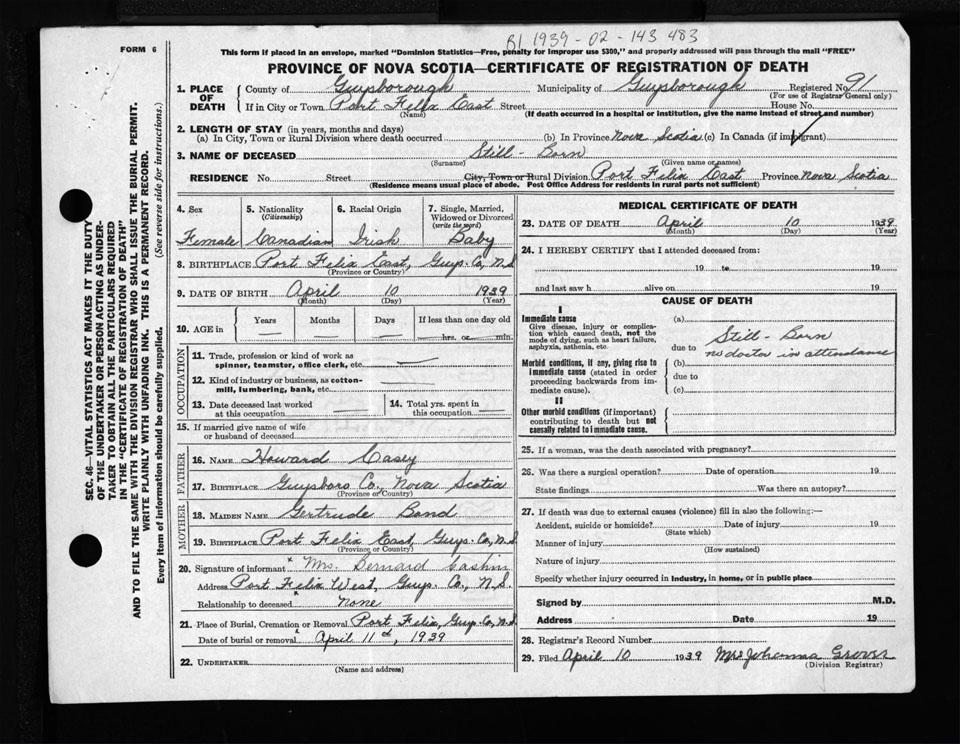 FORM 6
B1 1939-02-143 483
This form if placed in an envelope, marked "Dominion Statistics—Free, penalty for improper use $300," and properly addressed will pass through the mail "FREE"
PROVINCE OF NOVA SCOTIA—CERTIFICATE OF REGISTRATION OF DEATH
SEC. 46—VITAL STATISTICS ACT MAKES IT THE DUTY
OF THE UNDERTAKER OR PERSON ACTING AS UNDER-
TAKER TO OBTAIN ALL THE PARTICULARS REQUIRED
IN THE "CERTIFICATE OF REGISTRATION OF DEATH"
AND TO FILE THE SAME WITH THE DIVISION REGISTRAR WHO SHALL ISSUE THE BURIAL PERMIT.
WRITE PLAINLY WITH UNFADING INK. THIS IS A PERMANENT RECORD.
Every item of information should be carefully supplied. (See reverse side for instructions.)
1. PLACE OF DEATH County of Guysborough Municipality of Guysborough Registered No 91
(For use of Registrar General only)
If in City or Town Port Felix East Street House No.
(Name) (If death occurred in a hospital or institution, give the name instead of street and number)
2. LENGTH OF STAY (in years, months and days)
(a) In City, Town or Rural Division where death occurred (b) In Province Nova Scotia (c) In Canada (if immigrant)
3. NAME OF DECEASED Still-Born
(Surname) (Given name or names)
RESIDENCE No. Street City, Town or Rural Division Port Felix East Province Nova Scotia
(Residence means usual place of abode. Post Office Address for residents in rural parts not sufficient)
4. Sex 5. Nationality (Citizenship) 6. Racial Origin 7. Single, Married, Widowed or Divorced (write the word)
Female Canadian Irish Baby
8. BIRTHPLACE Port Felix East, Guys. Co, N.S
(Province or Country)
9. DATE OF BIRTH April 10 1939
(Month) (Day) (Year)
10. AGE in Years Months Days If less than one day old
hrs. or min.
OCCUPATION
11. Trade, profession or kind of work as
spinner, teamster, office clerk, etc. —
12. Kind of industry or business, as cotton-
mill, lumbering, bank, etc. —
13. Date deceased last worked
at this occupation —
14. Total yrs. spent in
this occupation —
15. If married give name of wife
or husband of deceased
FATHER
16. NAME Howard Casey
17. BIRTHPLACE Guysboro Co., Nova Scotia
(Province or Country)
MOTHER
18. MAIDEN NAME Gertrude Bond
19. BIRTHPLACE Port Felix East, Guys. Co, N.S
(Province or Country)
20. Signature of informant Mrs. Bernard Cashin
Address Port Felix West, Guys. Co., N.S.
Relationship to deceased none
21. Place of Burial, Cremation or Removal Port Felix, Guys. Co, N.S
Date of burial or removal April 11th, 1939
22. UNDERTAKER
(Name and address)
MEDICAL CERTIFICATE OF DEATH
23. DATE OF DEATH April 10 1939
(Month) (Day) (Year)
24. I HEREBY CERTIFY that I attended deceased from:
19 to 19
and last saw h alive on 19
CAUSE OF DEATH
I
Immediate cause
Give disease, injury or complica-
tion which caused death, not the
mode of dying, such as heart failure,
asphyxia, asthenia, etc.
(a)
Still-Born
due to no doctor in attendance
Morbid conditions, if any, giving rise to
immediate cause (stated in order
proceeding backwards from im-
mediate cause).
(b)
due to
(c)
II
Other morbid conditions (if important)
contributing to death but not
causally related to immediate cause.
25. If a woman, was the death associated with pregnancy?
26. Was there a surgical operation? Date of operation 19
State findings Was there an autopsy?
27. If death was due to external causes (violence) fill in also the following:—
Accident, suicide or homicide? Date of injury 19
(State which)
Manner of injury
(How sustained)
Nature of injury
Specify whether injury occurred in industry, in home, or in public place
Signed by M.D.
Address Date 19
28. Registrar's Record Number
29. Filed April 10 1939 Mrs Johanna Grover
(Division Registrar)